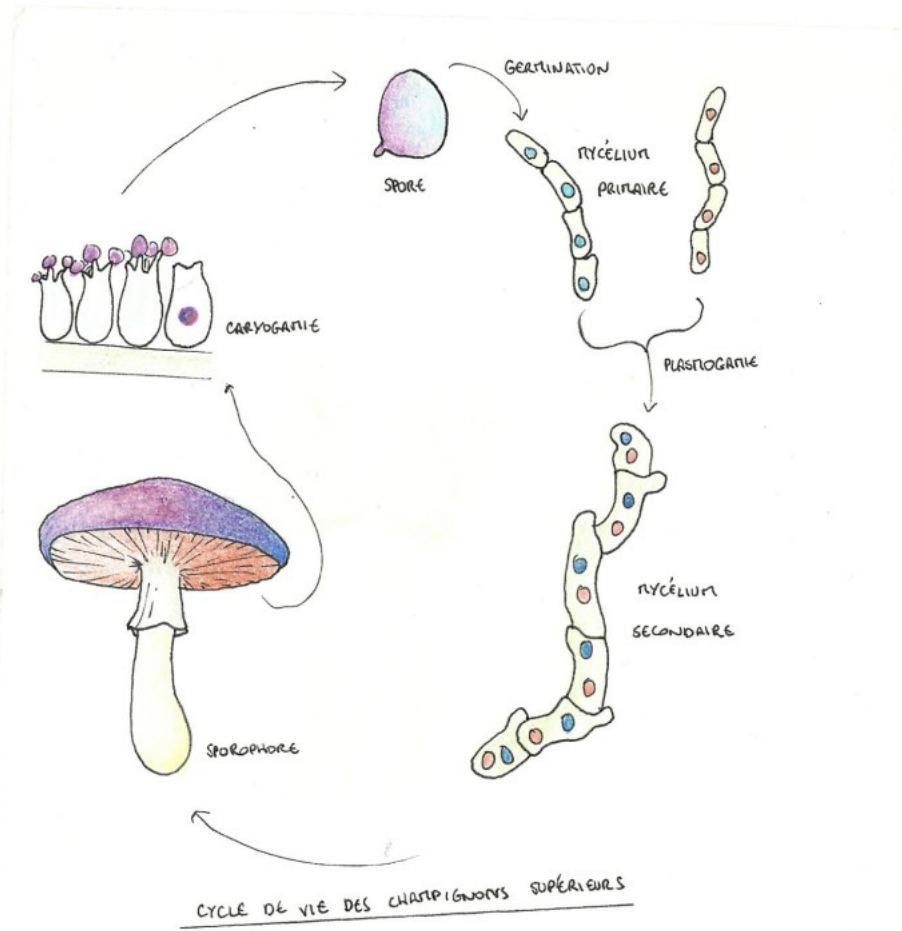 GERMINATION
SPORE
MYCÉLIUM
PRIMAIRE
CARYOGAMIE
PLASMOGAMIE
MYCÉLIUM
SECONDAIRE
SPOROPHORE
CYCLE DE VIE DES CHAMPIGNONS SUPÉRIEURS